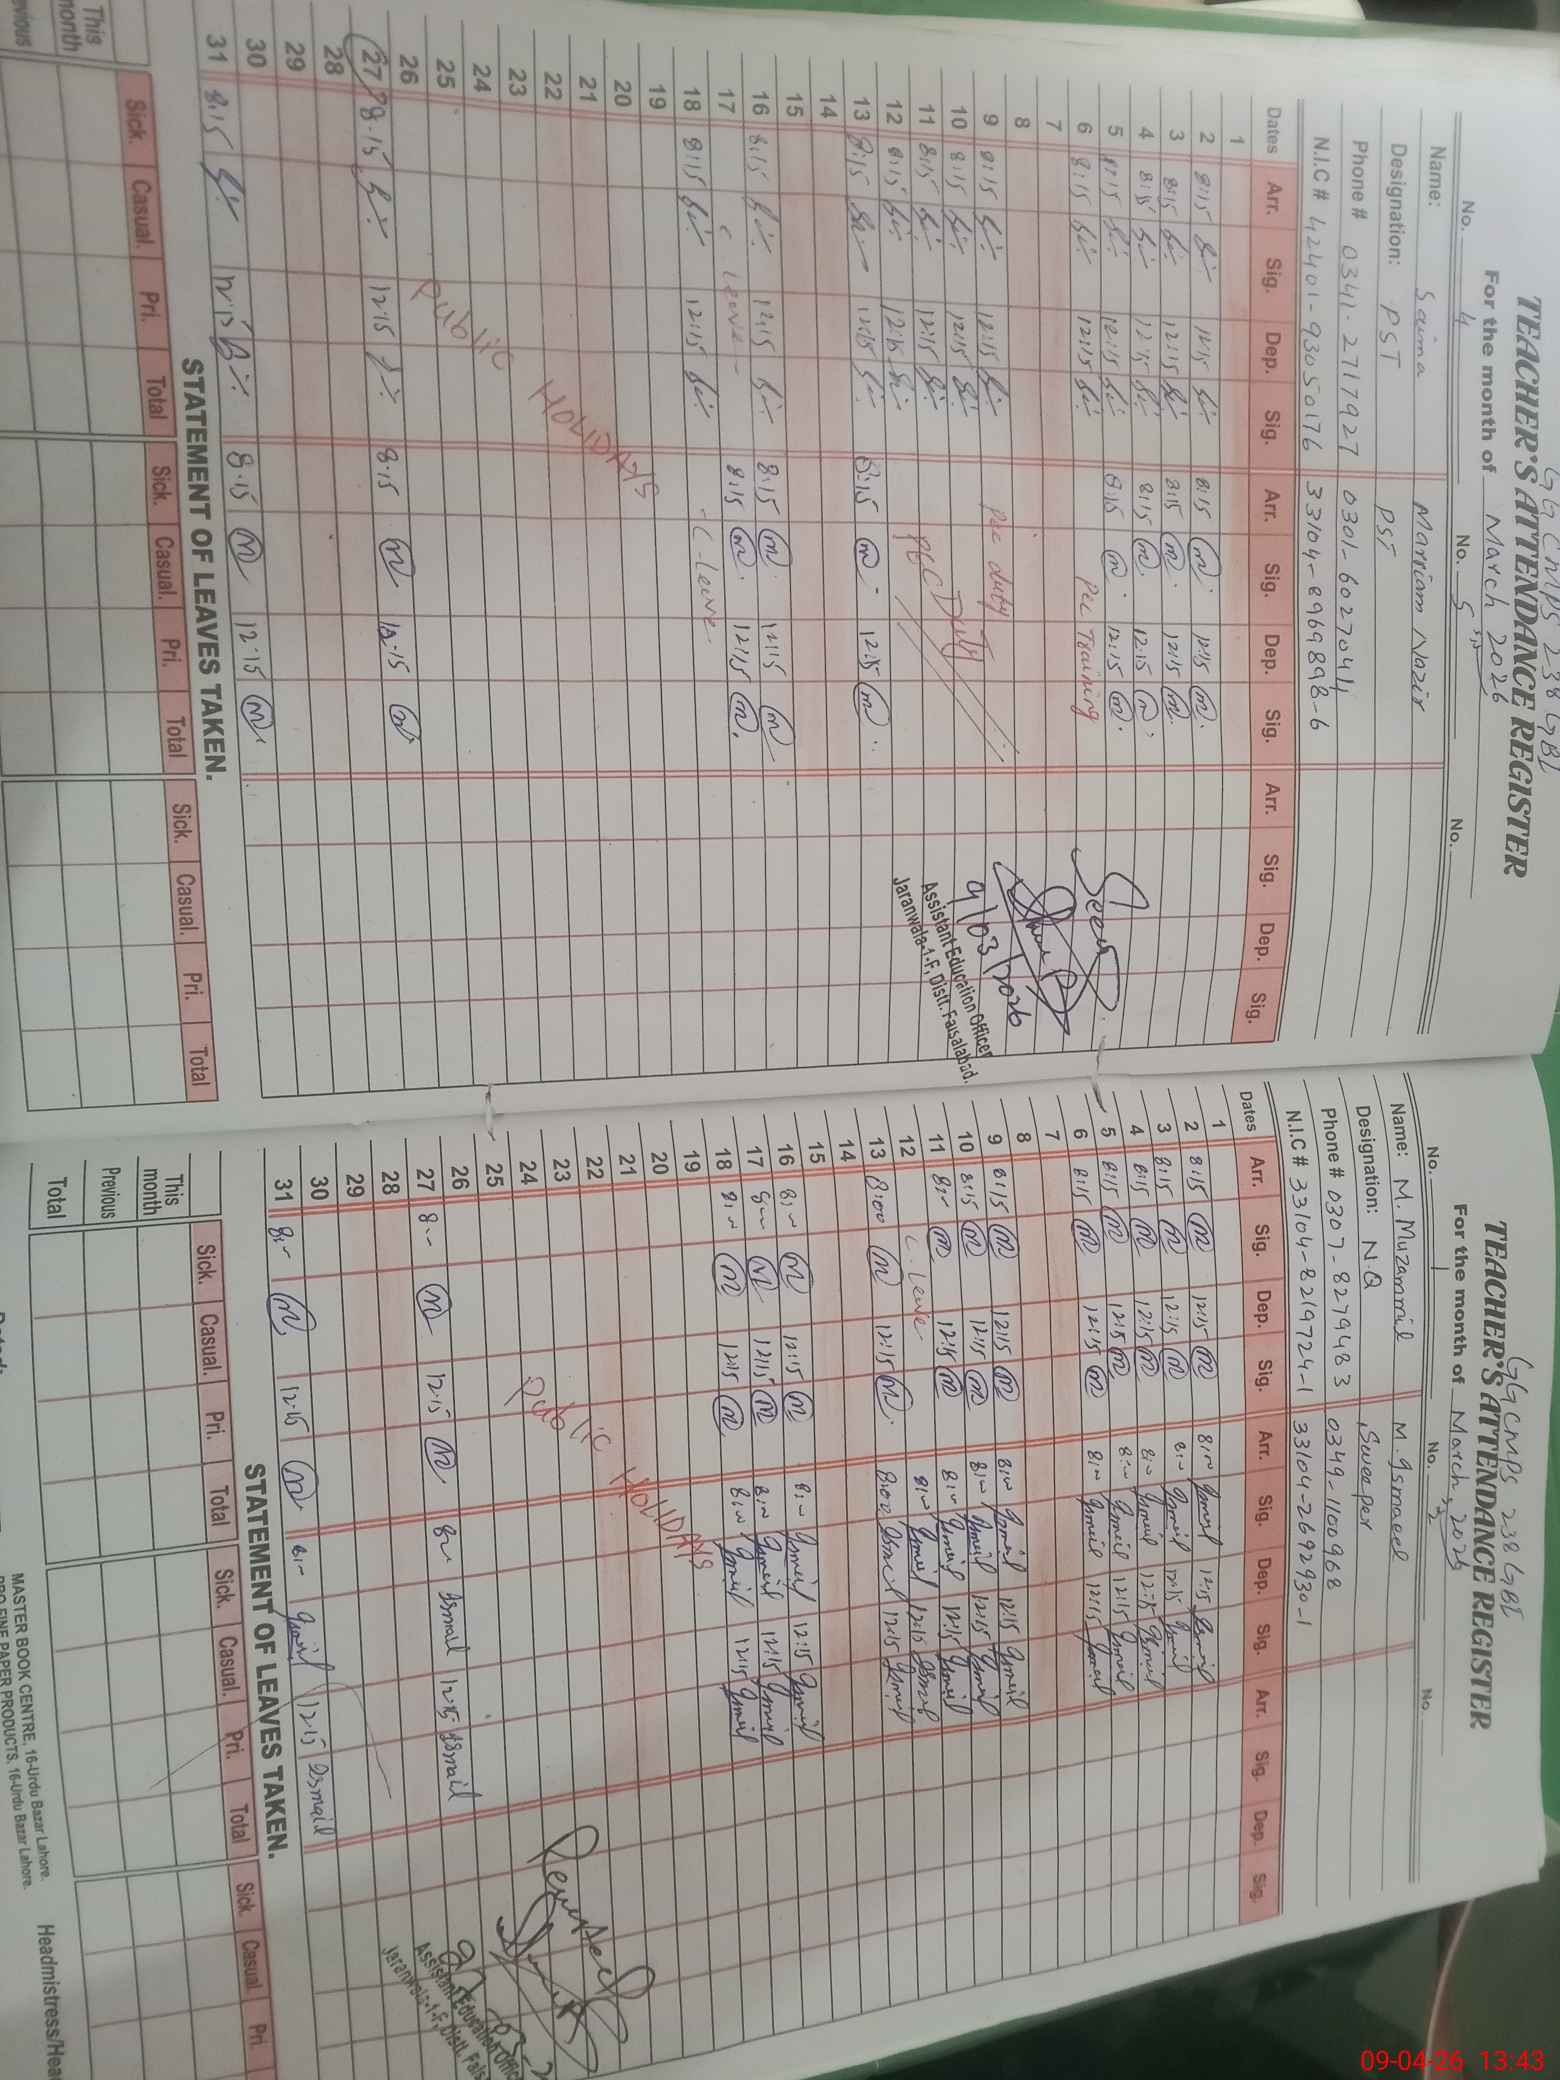 GGCMPS 238 GBI
TEACHER'S ATTENDANCE REGISTER
For the month of March 2026
No. 4 No. 5 No.
Name: Saima Marriam Nazir
Designation: PST PST
Phone # 0341-2717927 0301-6027044
N.I.C # 42401-93050176 33104-8969898-6
Dates Arr. Sig. Dep. Sig. Arr. Sig. Dep. Sig. Arr. Sig. Dep. Sig.
1
2 8:15 12:15 8:15 m 12:15 m
3 8:15 12:15 8:15 m 12:15 m
4 8:15 12:15 8:15 m 12:15 m
5 8:15 12:15 8:15 m 12:15 m
6 8:15 12:15 Pec Training
7
8
9 8:15 12:15 Pec duty
10 8:15 12:15
11 8:15 12:15 PEC Duty
12 8:15 12:15
13 8:15 12:15 8:15 m 12:15 m
14
15
16 8:15 12:15 8:15 m 12:15 m
17 c leave 8:15 m 12:15 m
18 8:15 12:15 C-leave
19
20
21
22
23
24
25
26
Public HOLIDAYS
27 8:15 12:15 8:15 m 12:15 m
28
29
30
31 8:15 8:15 m 12:15 m
9/03/2026
Assistant Education Officer
Jaranwala-1-F, Distt. Faisalabad.
STATEMENT OF LEAVES TAKEN.
Sick. Casual. Pri. Total Sick. Casual. Pri. Total Sick. Casual. Pri. Total
This month
GGCMPS 238 GBI
TEACHER'S ATTENDANCE REGISTER
For the month of March, 2026
No. 1 No. 2 No.
Name: M. Muzammil M. Ismaeel
Designation: N.Q Sweaper
Phone # 0307-8279483 0349-1100968
N.I.C # 33104-8219724-1 33104-2692930-1
Dates Arr. Sig. Dep. Sig. Arr. Sig. Dep. Sig. Arr. Sig. Dep. Sig.
1
2 8:15 m 12:15 m Ismail 12:15 Ismail
3 8:15 m 12:15 m Ismail 12:15 Ismail
4 8:15 m 12:15 m Ismail 12:15 Ismail
5 8:15 m 12:15 m Ismail 12:15 Ismail
6 8:15 m 12:15 m Ismail 12:15 Ismail
7
8
9 8:15 m 12:15 m Ismail 12:15 Ismail
10 8:15 m 12:15 m Ismail 12:15 Ismail
11 m 12:15 m Ismail 12:15 Ismail
12 C. Leave Ismail 12:15 Ismail
13 8:00 m 12:15 m 8:00 Ismail 12:15 Ismail
14
15
16 m 12:15 m Ismail 12:15 Ismail
17 m 12:15 m Ismail 12:15 Ismail
18 m 12:15 m Ismail 12:15 Ismail
19
20
21
22
23
24
25
26
Public HOLIDAYS
27 m 12:15 m Ismail 12:15 Ismail
28
29
30
31 m 12:15 m Ismail 12:15 Ismail
Assistant Education
Jaranwala-1-F, Distt.
STATEMENT OF LEAVES TAKEN.
Sick. Casual. Pri. Total Sick. Casual. Pri. Total Sick. Casual. Pri.
This month
Previous
Total
MASTER BOOK CENTRE, 16-Urdu Bazar Lahore.
PRO FINE PAPER PRODUCTS, 16-Urdu Bazar Lahore.
09-04-26 13:43